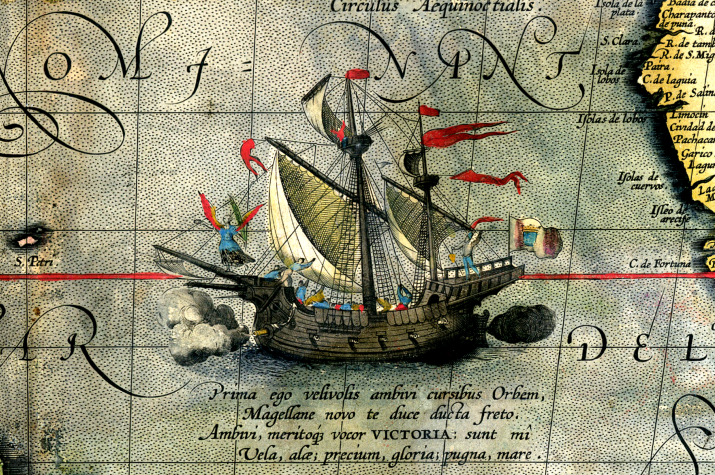 Circulus Aequinoctialis.
Isola de la
plata.
Charapanto
de puna.
S. Clara.
R. de tame
R. de S. Mig
Paira.
Isola de
lobos
C. de laguia
P. de Salin
Isolas de lobos
Limocin
Civdad de
Pachaca
Garico
Lagu
Isolas de
cuervos.
Isleo de
arecife
S. Petri
C. de Fortuna
OMI= NPNT
AR DEL
Prima ego velivolis ambivi cursibus Orbem,
Magellane novo te duce ducta freto.
Ambivi, meritoq; vocor VICTORIA: sunt mî
Vela, alæ; precium, gloria; pugna, mare.